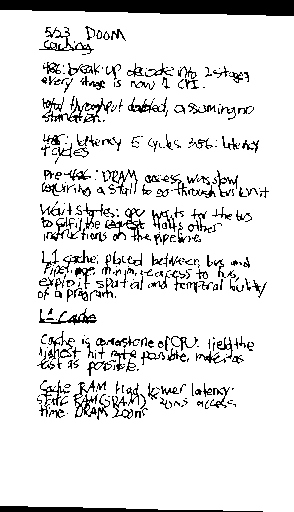 5/23 DOOM
Caching
486: break up decode into 2 stages
every stage is now 1 CPI.
total throughput doubled, assuming no
starvation.
486: latency 5 cycles 386: latency
4 cycles
Pre-486: DRAM access was slow
requiring a stall to go through bus unit
Wait states: CPU waits for the bus
to fulfil the request. Halts other
instructions on the pipeline
L1 cache: placed between bus and
Pipeline, minimize access to bus,
exploit spatial and temporal locality
of a program.
L1 Cache
Cache is cornerstone of CPU. Yield the
highest hit rate possible, make as
fast as possible.
Cache RAM had lower latency.
Static RAM (SRAM) 20ns access
time. DRAM 200ns